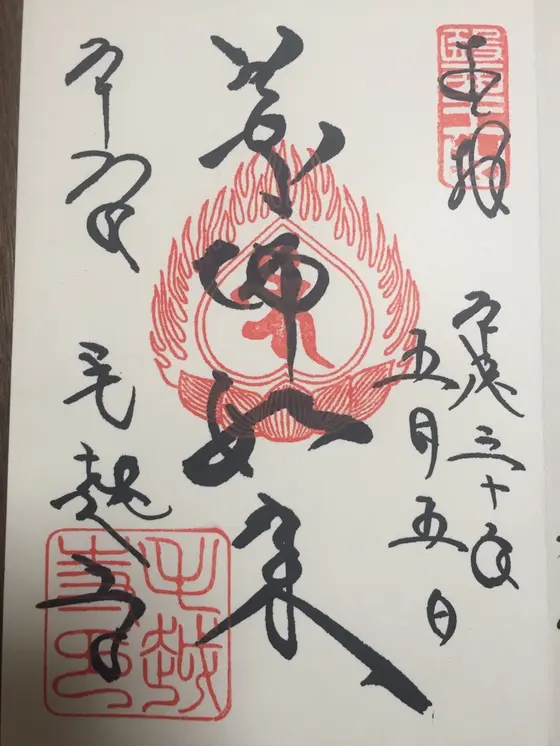 奉拝
平成三十年
五月五日
薬師如来
平泉
毛越寺
毛越
寺印